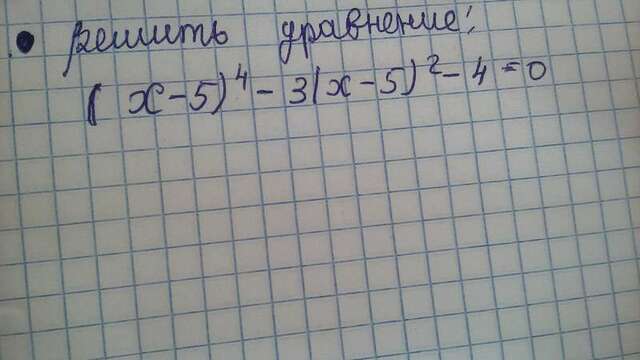 решить уравнение:
(x-5)⁴ - 3(x-5)² - 4 = 0